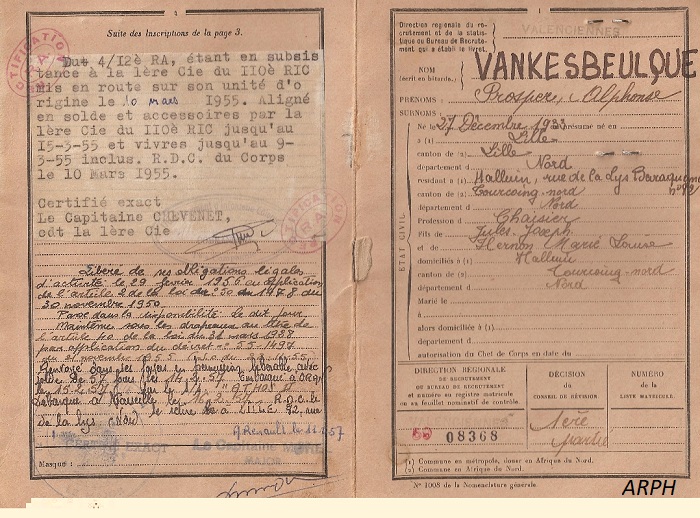 4
Suite des Inscriptions de la page 3.
Dut 4/12è RA, étant en subsis
tance à la 1ère Cie du IIOè RIC
mis en route sur son unité d'o
rigine le 10 mars 1955. Aligné
en solde et accessoires par la
1ère Cie du IIOè RIC jusqu'au
15-3-55 et vivres jusqu'au 9-
3-55 inclus. R.D.C. du Corps
le 10 Mars 1955.
Certifié exact
Le Capitaine CHEVENET,
cdt la 1ère Cie
Libéré de ses obligations légales
d'activité le 29 février 1956 en application
de l'article 2 de la loi du 30 1478 du
30 novembre 1950
Passé dans la disponibilité. Le dit jour
Maintenu sous les drapeaux au titre de
l'article 40 de la loi du 31 mars 1928
par application du décret n° 55-1497
du 21 novembre 1955
Rentré dans ses foyers en permission libérable avec
solde de 57 jours le 14.2.57 Embarqué à ORAN
le 15.2.57 sur le
Débarqué à Marseille le 16.2.57 R.D.C. le
se retire à LILLE 92, rue
de la Lys (Nord)
CERTIFIÉ EXACT
Le Capitaine
MAJOR
Masque :
Direction régionale du re-
crutement et de la statis-
tique ou Bureau de Recrute-
ment qui a établi le livret.
VALENCIENNES
NOM
(écrit en bâtarde.)
VANKESBEULQUE
PRÉNOMS : Prosper, Alphonse
SURNOMS :
Né le 27 Décembre 1933 ou présumé né en
à (1) Lille
canton de (2) Lille
département d Nord
résidant à (1) Halluin, rue de la Lys Baraquement n° 92
canton de (2) Tourcoing-nord
département d Nord
Profession d Chaisier
Fils de Jules Joseph
et de Hernon Marie Louise
domiciliés à (1) Halluin
canton de (2) Tourcoing-nord
département d Nord
Marié le
à
alors domiciliée à (1)
département d
autorisation du Chef de Corps en date du
ÉTAT CIVIL
DIRECTION RÉGIONALE
DE RECRUTEMENT
OU BUREAU DE RECRUTEMENT
et numéro en registre matricule
ou au feuillet nominatif de contrôle
DÉCISION
du
CONSEIL DE RÉVISION.
NUMÉRO
de la
LISTE MATRICULE.
08368
1ère
partie
(1) Commune en métropole, douar en Afrique du Nord.
(2) Commune en Afrique du Nord.
N° 1008 de la Nomenclature générale.
ARPH